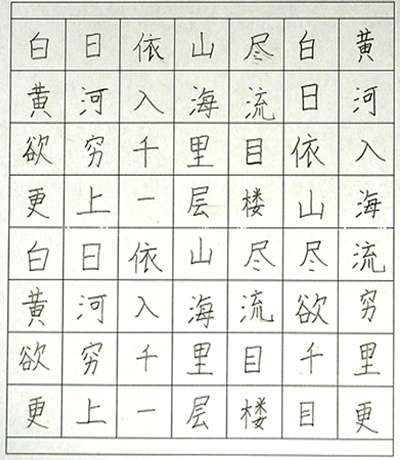 白日依山尽白黄
黄河入海流日河
欲穷千里目依入
更上一层楼山海
白日依山尽尽流
黄河入海流欲穷
欲穷千里目千里
更上一层楼目更